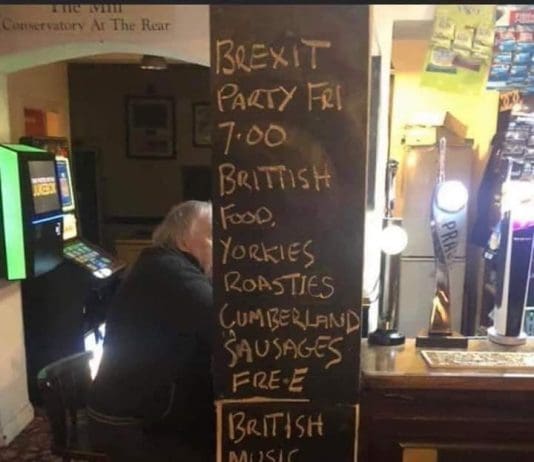 The Mill
Conservatory At The Rear
BREXIT
PARTY FRI
7.00
BRITTISH
FOOD,
YORKIES
ROASTIES
CUMBERLAND
SAUSAGES
FRE-E
BRITISH
MUSIC
JUKEBOX